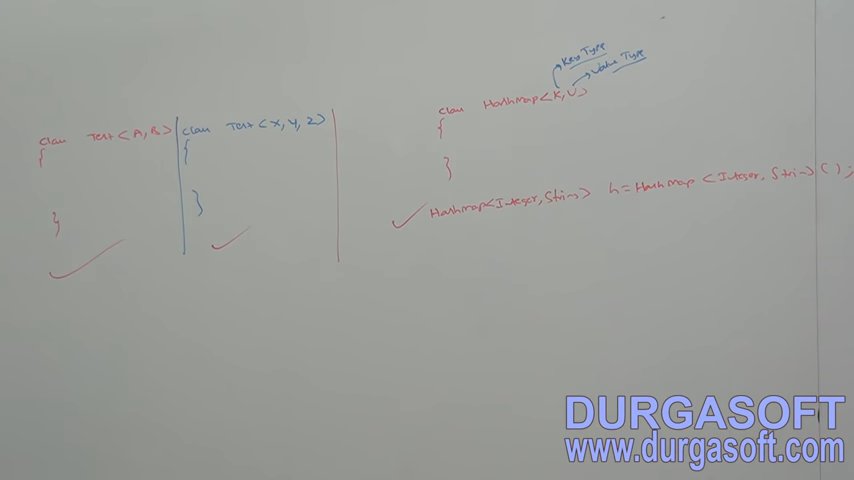 class Test<A,B>
{
}
class Test<X,Y,Z>
{
}
Key Type
Value Type
class HashMap<K,V>
{
}
HashMap<Integer,String> h=HashMap <Integer, String> ( ) ;
DURGASOFT
www.durgasoft.com